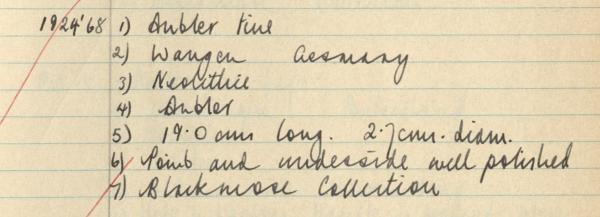 1924'68 1) Antler tine
2) Wangen Germany
3) Neolithic
4) Antler
5) 19.0 cms long. 2.7 cms. diam.
6) Point and underside well polished
7) Blackmore Collection